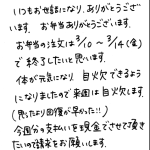 いつもお世話になり、ありがとうござい
ます。お弁当ありがとうございます。
お弁当の注文は3/10〜3/14(金)
で終了したいと思います。
体が元気になり、自火できるよう
になりましたので来週は自火します。
(思ったより回復が早かった!!)
今週分の支払いを現金でさせて頂き
たいので請求をお願いします。